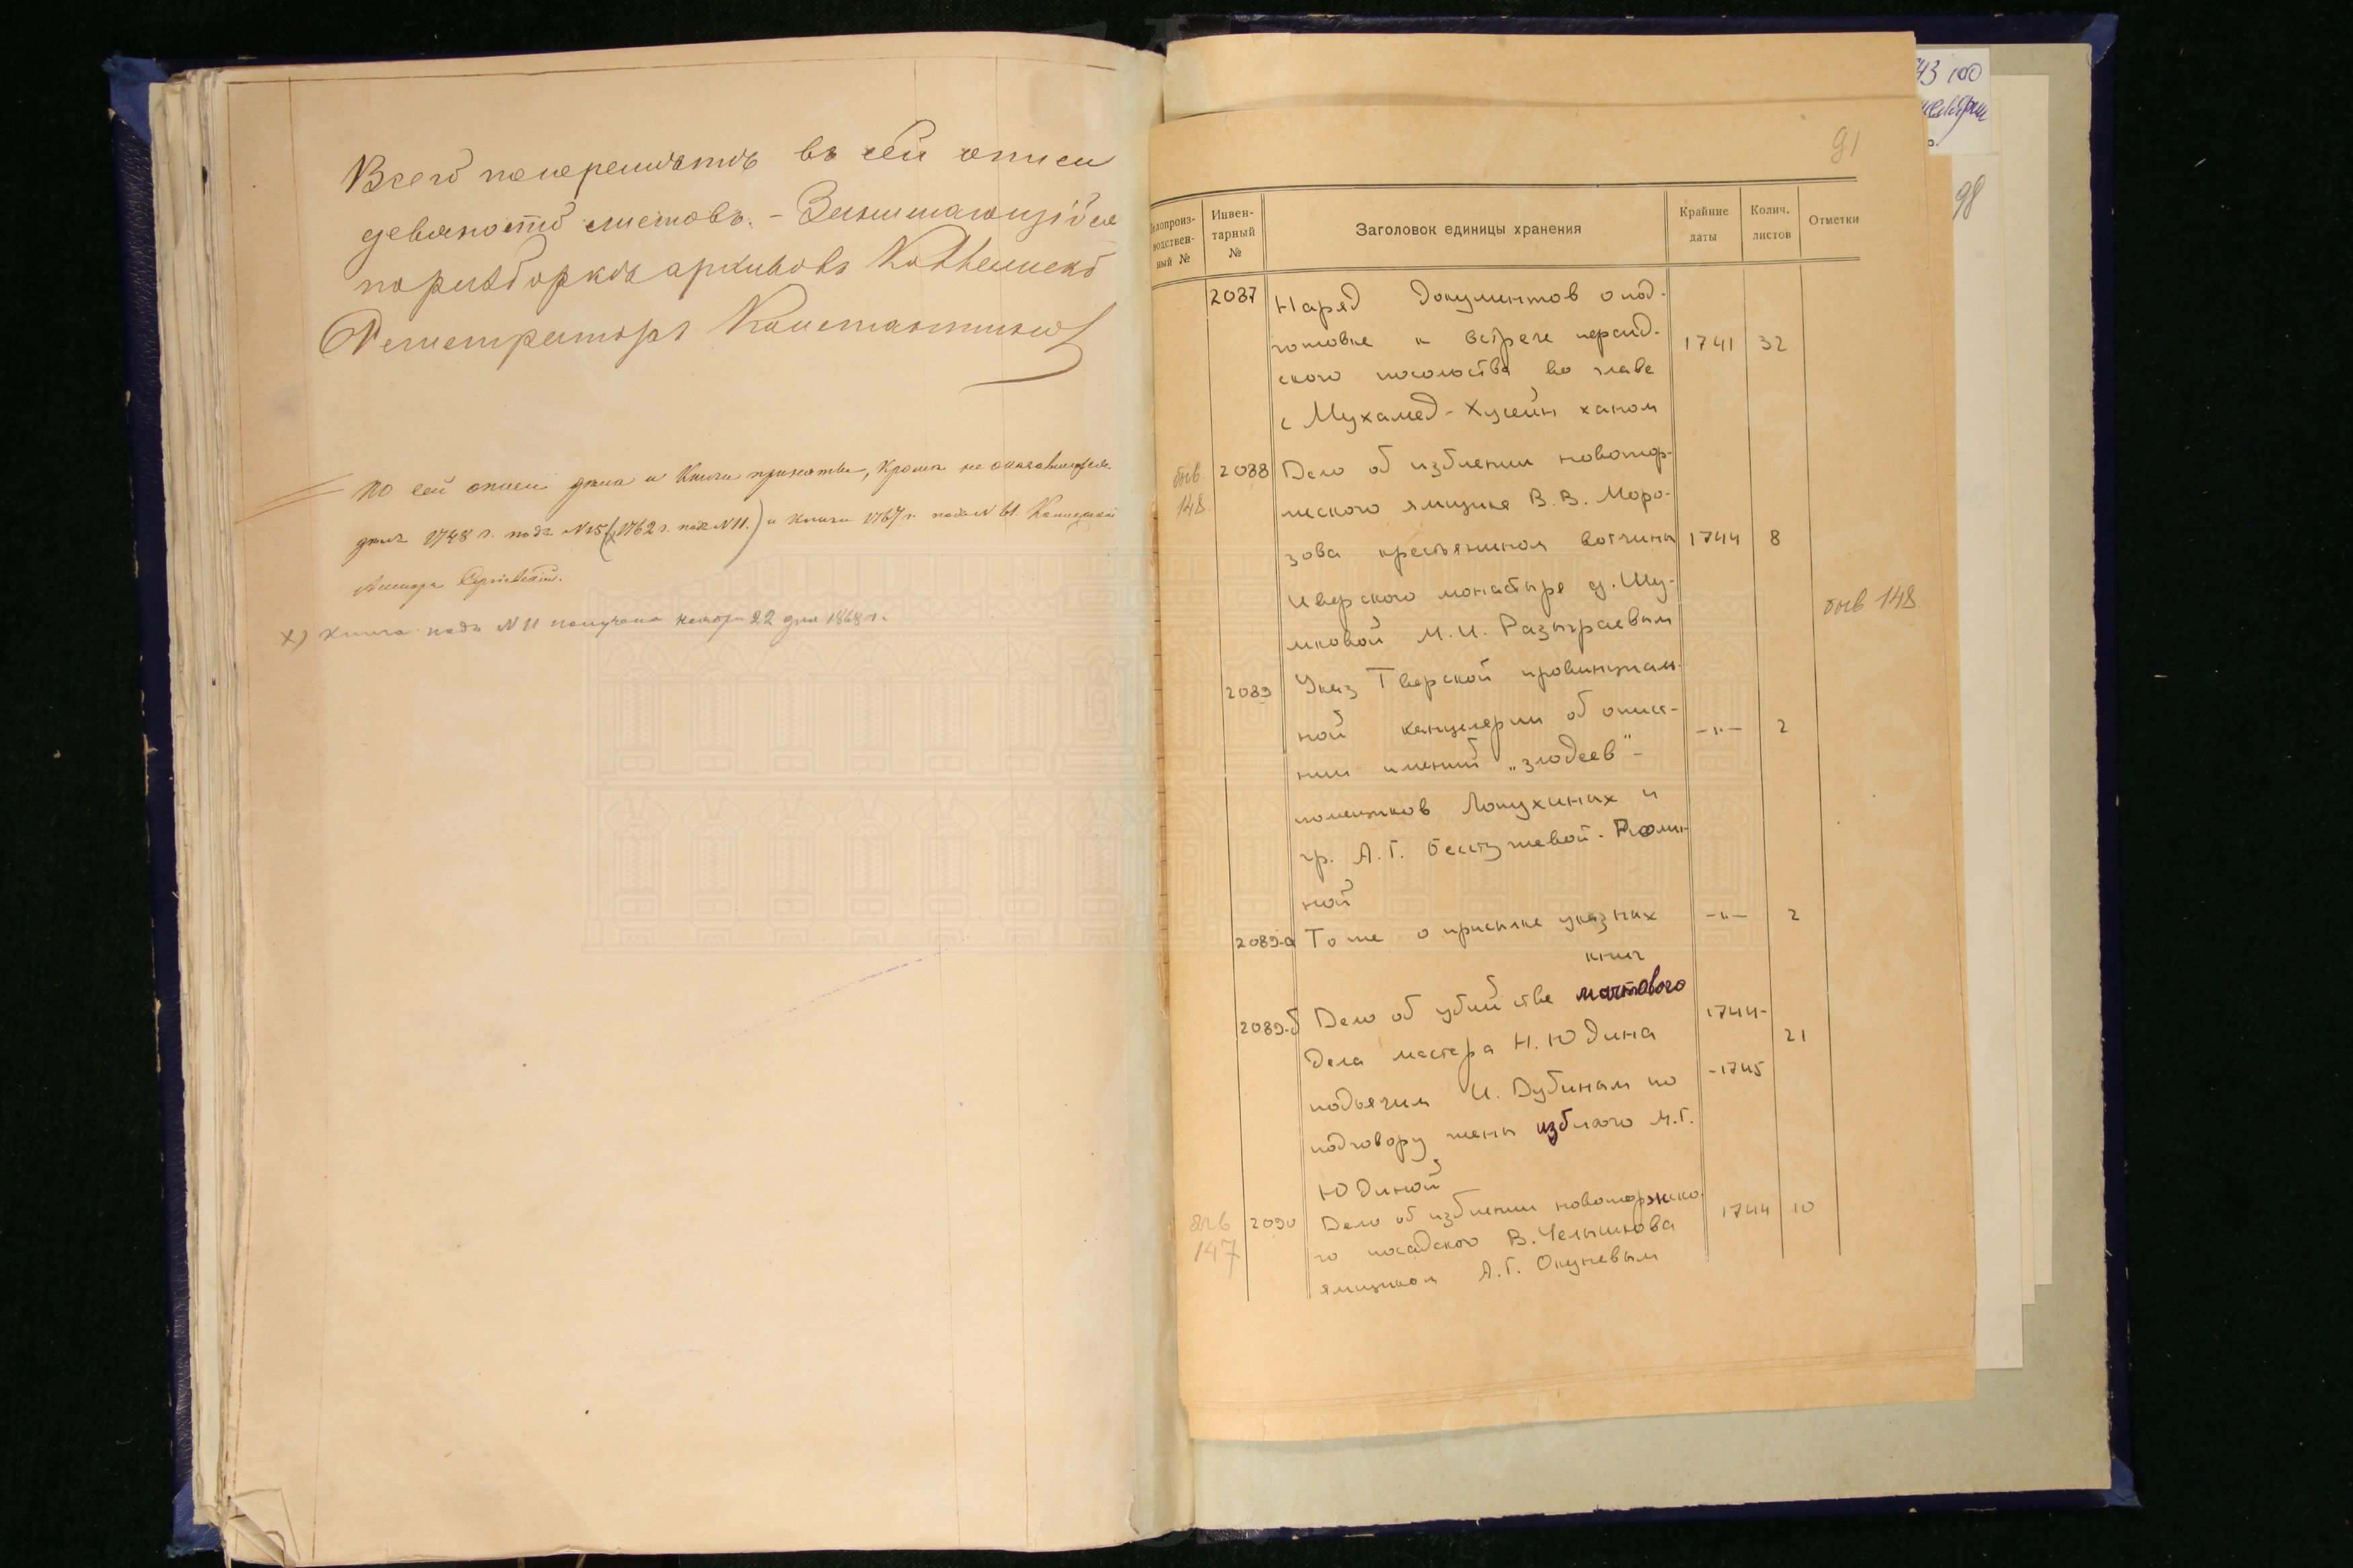 Всего перемѣтъ въ сей описи
девяносто листовъ. – Занимающійся
по разборкѣ архивовъ
Регистраторъ Константиновъ
По сей описи дѣла и книги приняты, кромѣ не оказавшихся
дѣлъ 1748 г. подъ N 15 (1762 г. подъ N 11.) и книги 1767 г. подъ N 61.
х) Книга подъ N 11 получена 22 дня 1868 г.
43
98
91
Делопроиз-
водствен-
ный №
Инвен-
тарный
№
Заголовок единицы хранения
Крайние
даты
Колич.
листов
Отметки
2087 Наряд документов о под-
готовке к встрече персид- 1741 32
ского посольства во главе
с Мухамед-Хусейн ханом
быв. 148. 2088 Дело об избиении новотор-
жского ямщика В. В. Моро-
зова крестьянином вотчины 1744 8
Иверского монастыря д. Шу-
мковой М. И. Разыграевым быв 148
2089 Указ Тверской провинциаль-
ной канцелярии об описа- -"- 2
нии имений „злодеев" -
помещиков Лопухиных и
гр. А. Г. Бестужевой-Рюмин-
ной
2089-а То же о присылке указных -"- 2
книг
2089-б Дело об убийстве мачтового 1744-
дела мастера Н. Юдина 21
подьячим И. Дубиным по -1745
подговору жены избитого М. Г.
Юдиной
быв 147 2090 Дело об избиении новоторжско-
го посадского В. Челышкова 1744 10
ямщиком А. Г. Окуневым